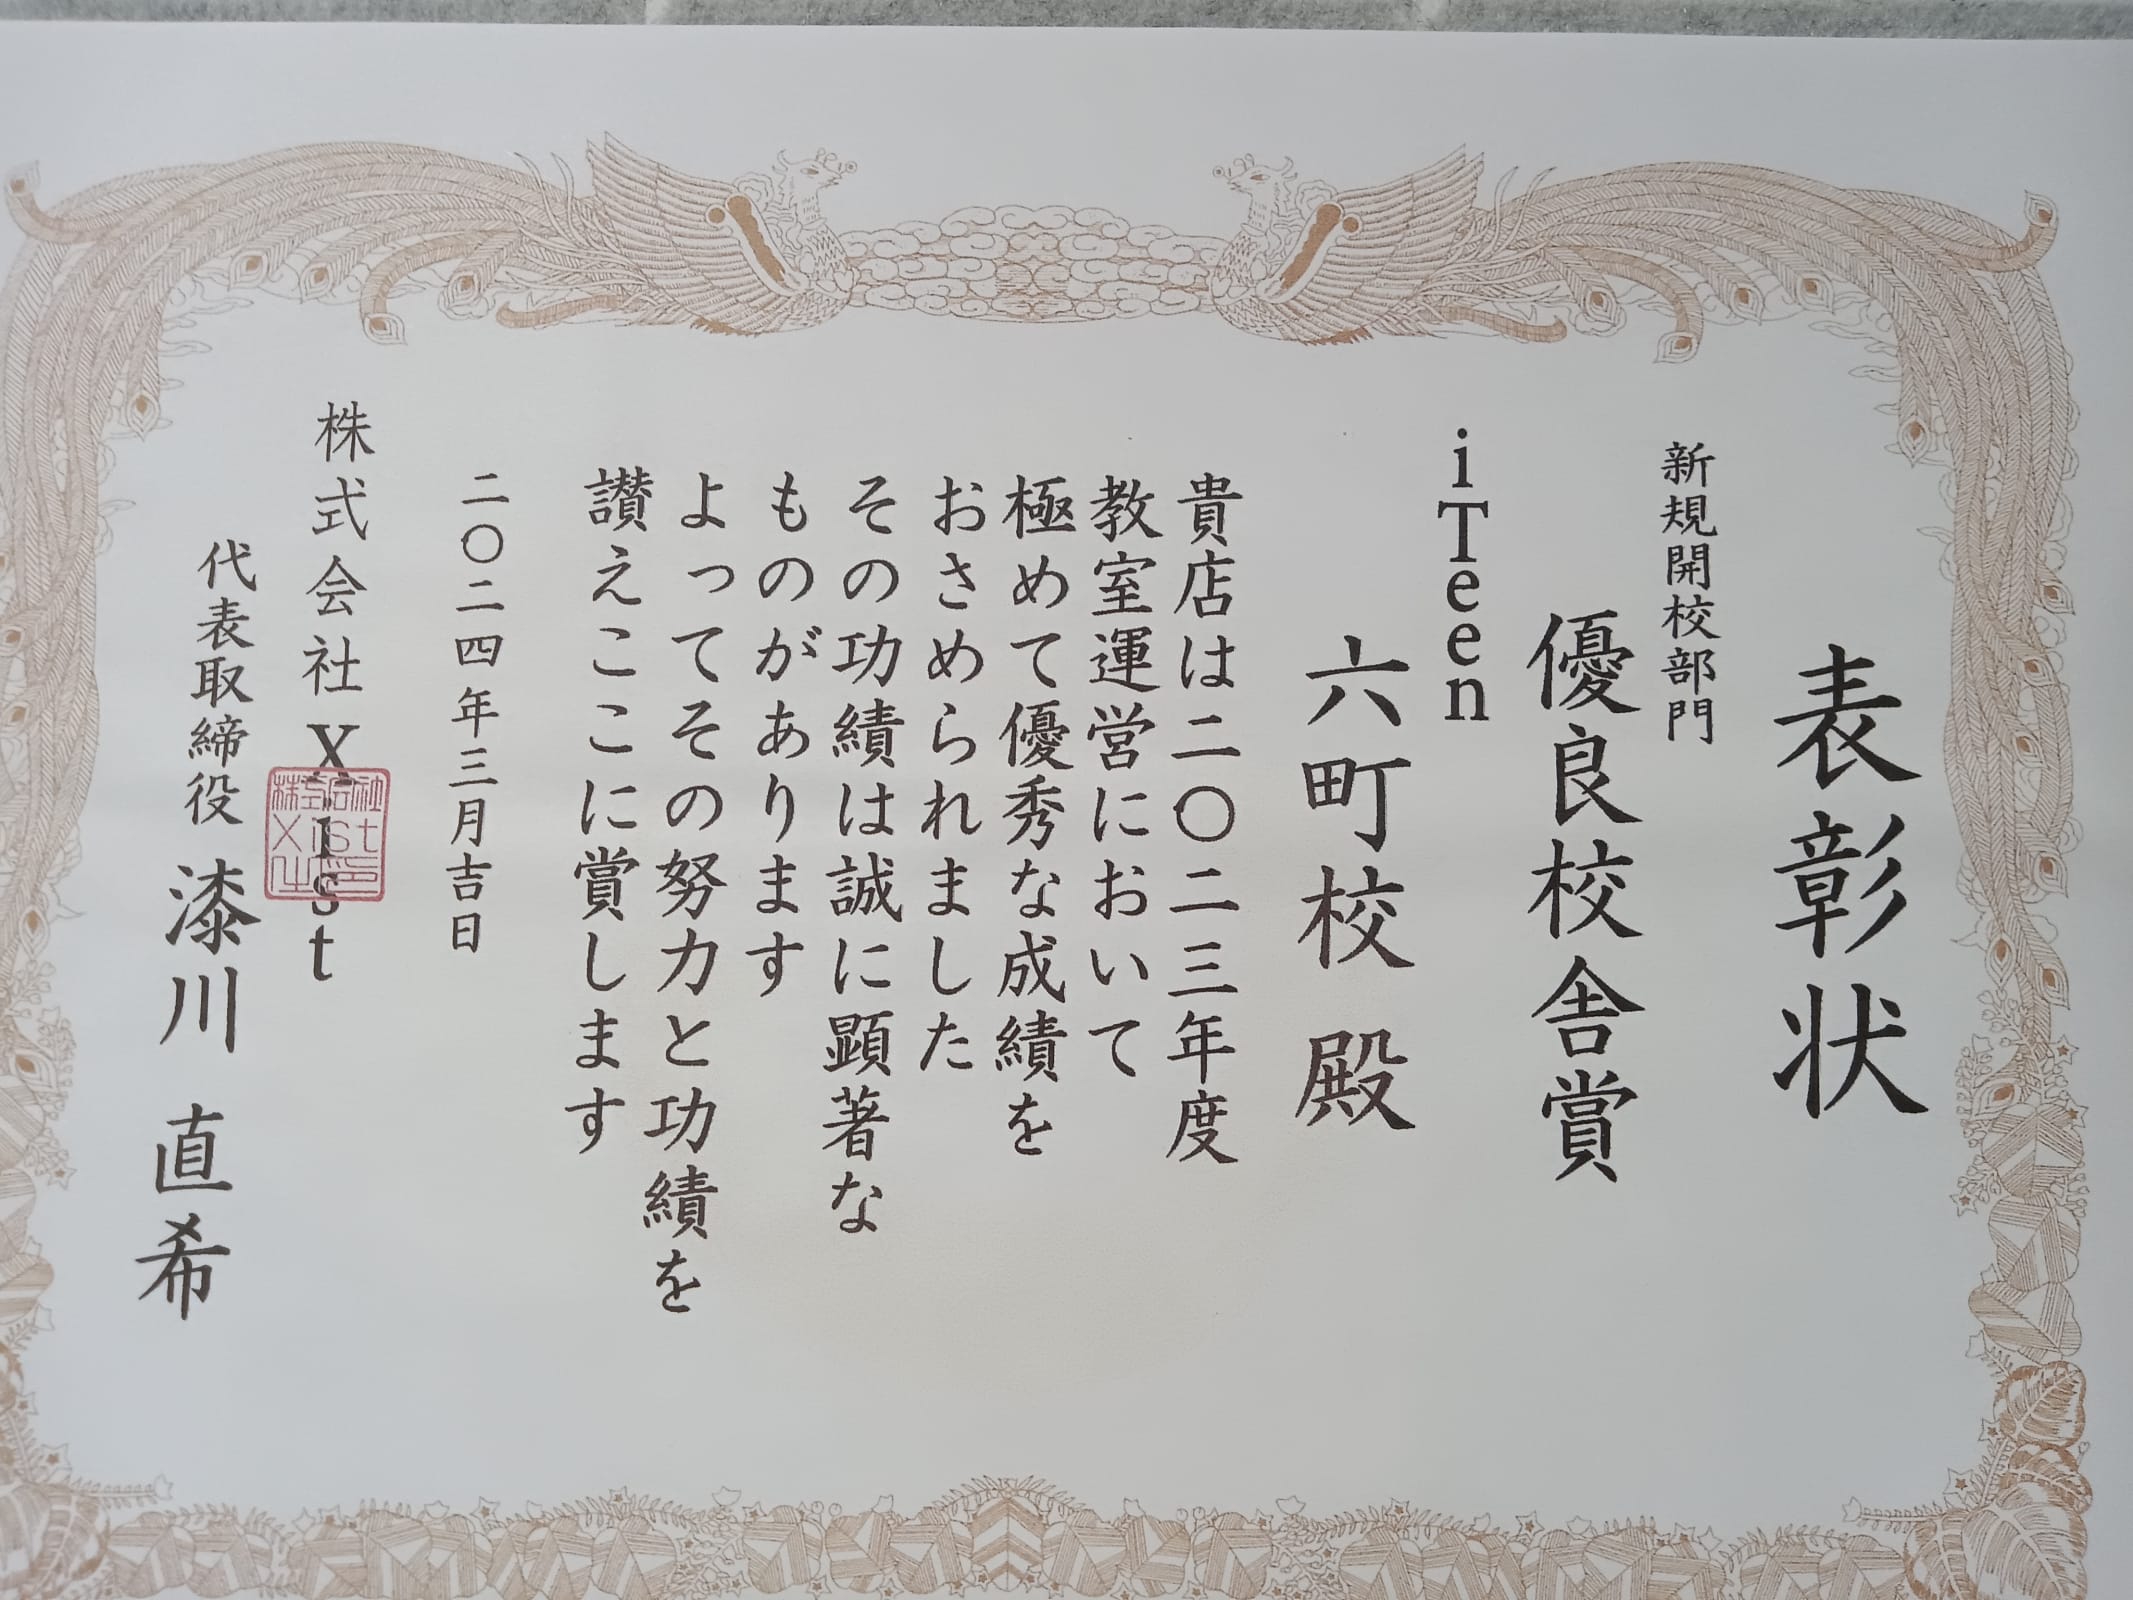 表彰状
新規開校部門
優良校舎賞
iTeen
六町校 殿
貴店は二〇二三年度
教室運営において
極めて優秀な成績を
おさめられました
その功績は誠に顕著な
ものがあります
よってその努力と功績を
讃えここに賞します
二〇二四年三月吉日
株式会社Xist
代表取締役 漆川 直希
株式会社
Xist
之印